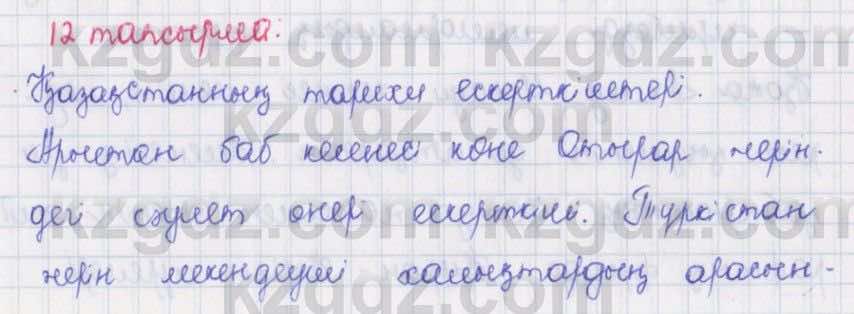 12 тапсырма:
Қазақстанның тарихи ескерткіштері.
Арыстан баб кесенесі көне Отырар жерін-
дегі сәулет өнері ескерткіші. Түркістан
жерін мекендеуші халықтардың арасын-
kzgdz.com